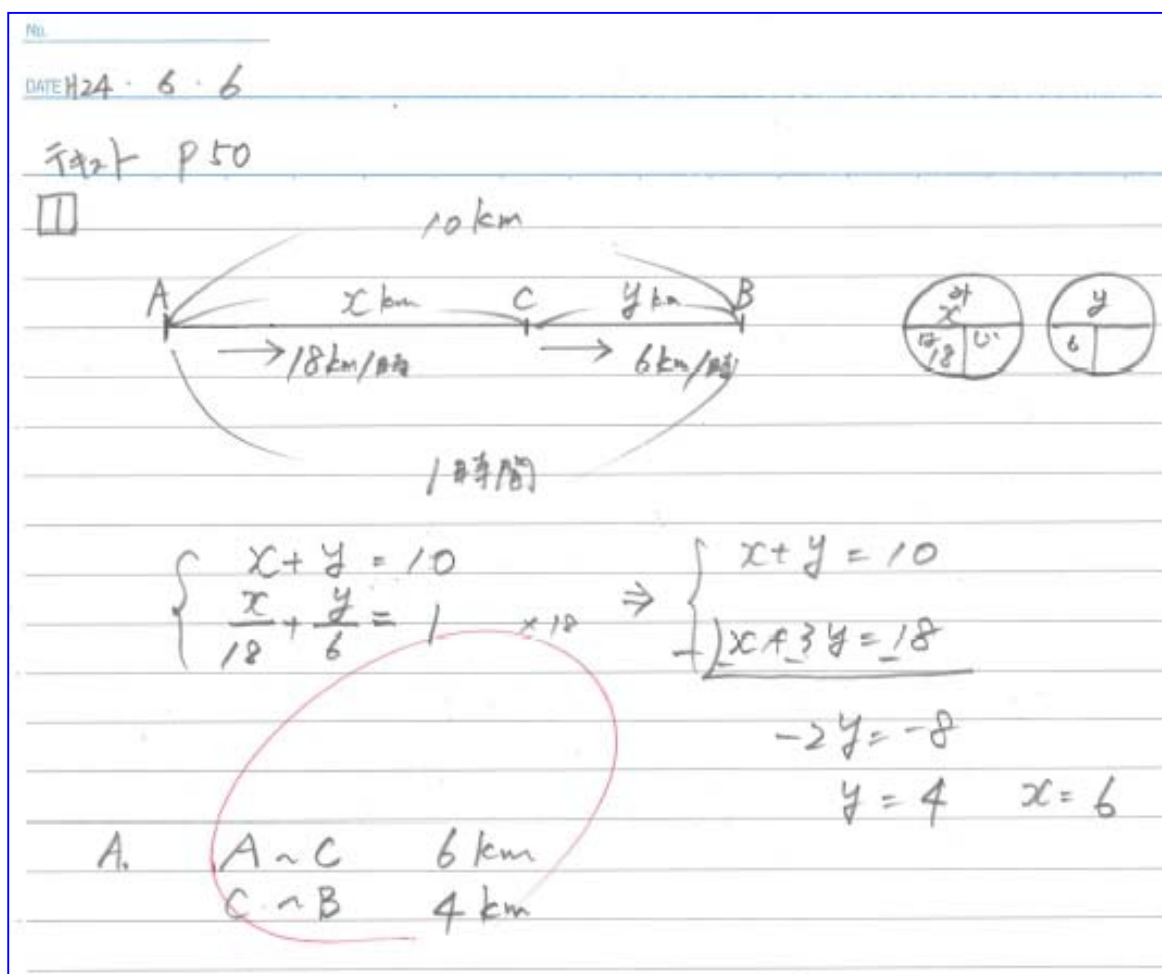 No.
DATE H24・6・6
テキスト P50
1
10km
A x km C y km B
→ 18km/時 → 6km/時
み x は 18 じ
y 6
1時間
{ x + y = 10
x/18 + y/6 = 1 ×18
⇒ { x + y = 10
-) x + 3y = 18
-2y = -8
y = 4 x = 6
A. A~C 6km
C~B 4km